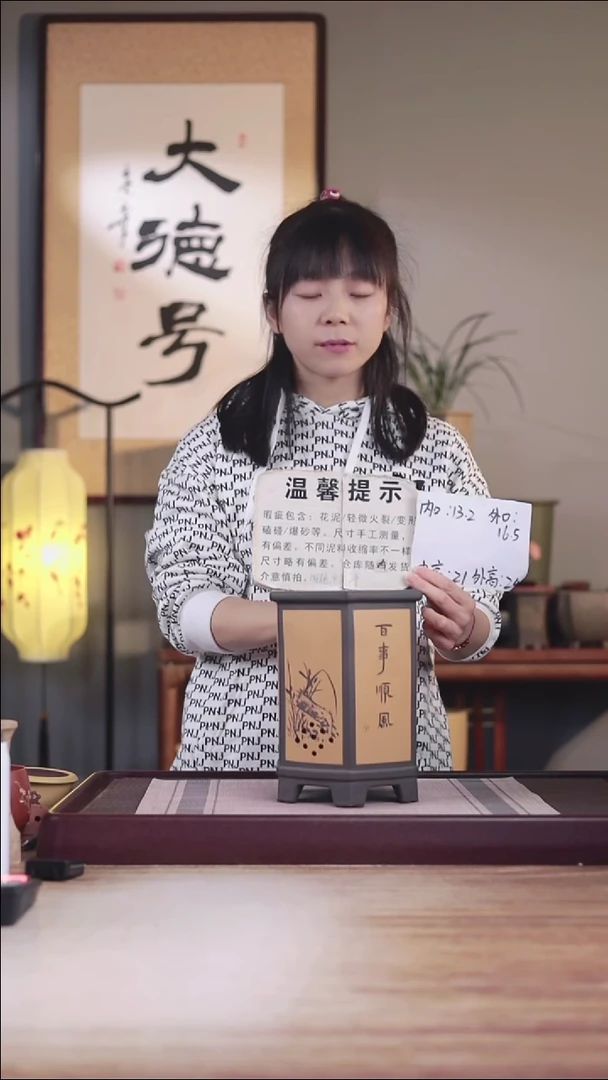 大德号
温馨提示
瑕疵包含：花泥/轻微火裂/变形
磕碰/爆砂等。尺寸手工测量，
有偏差。不同泥料收缩率不一样
尺寸略有偏差。仓库随机发货
介意慎拍。
内口:13.2 外口:
16.5
内高:21 外高:24
百事顺风
PNJ